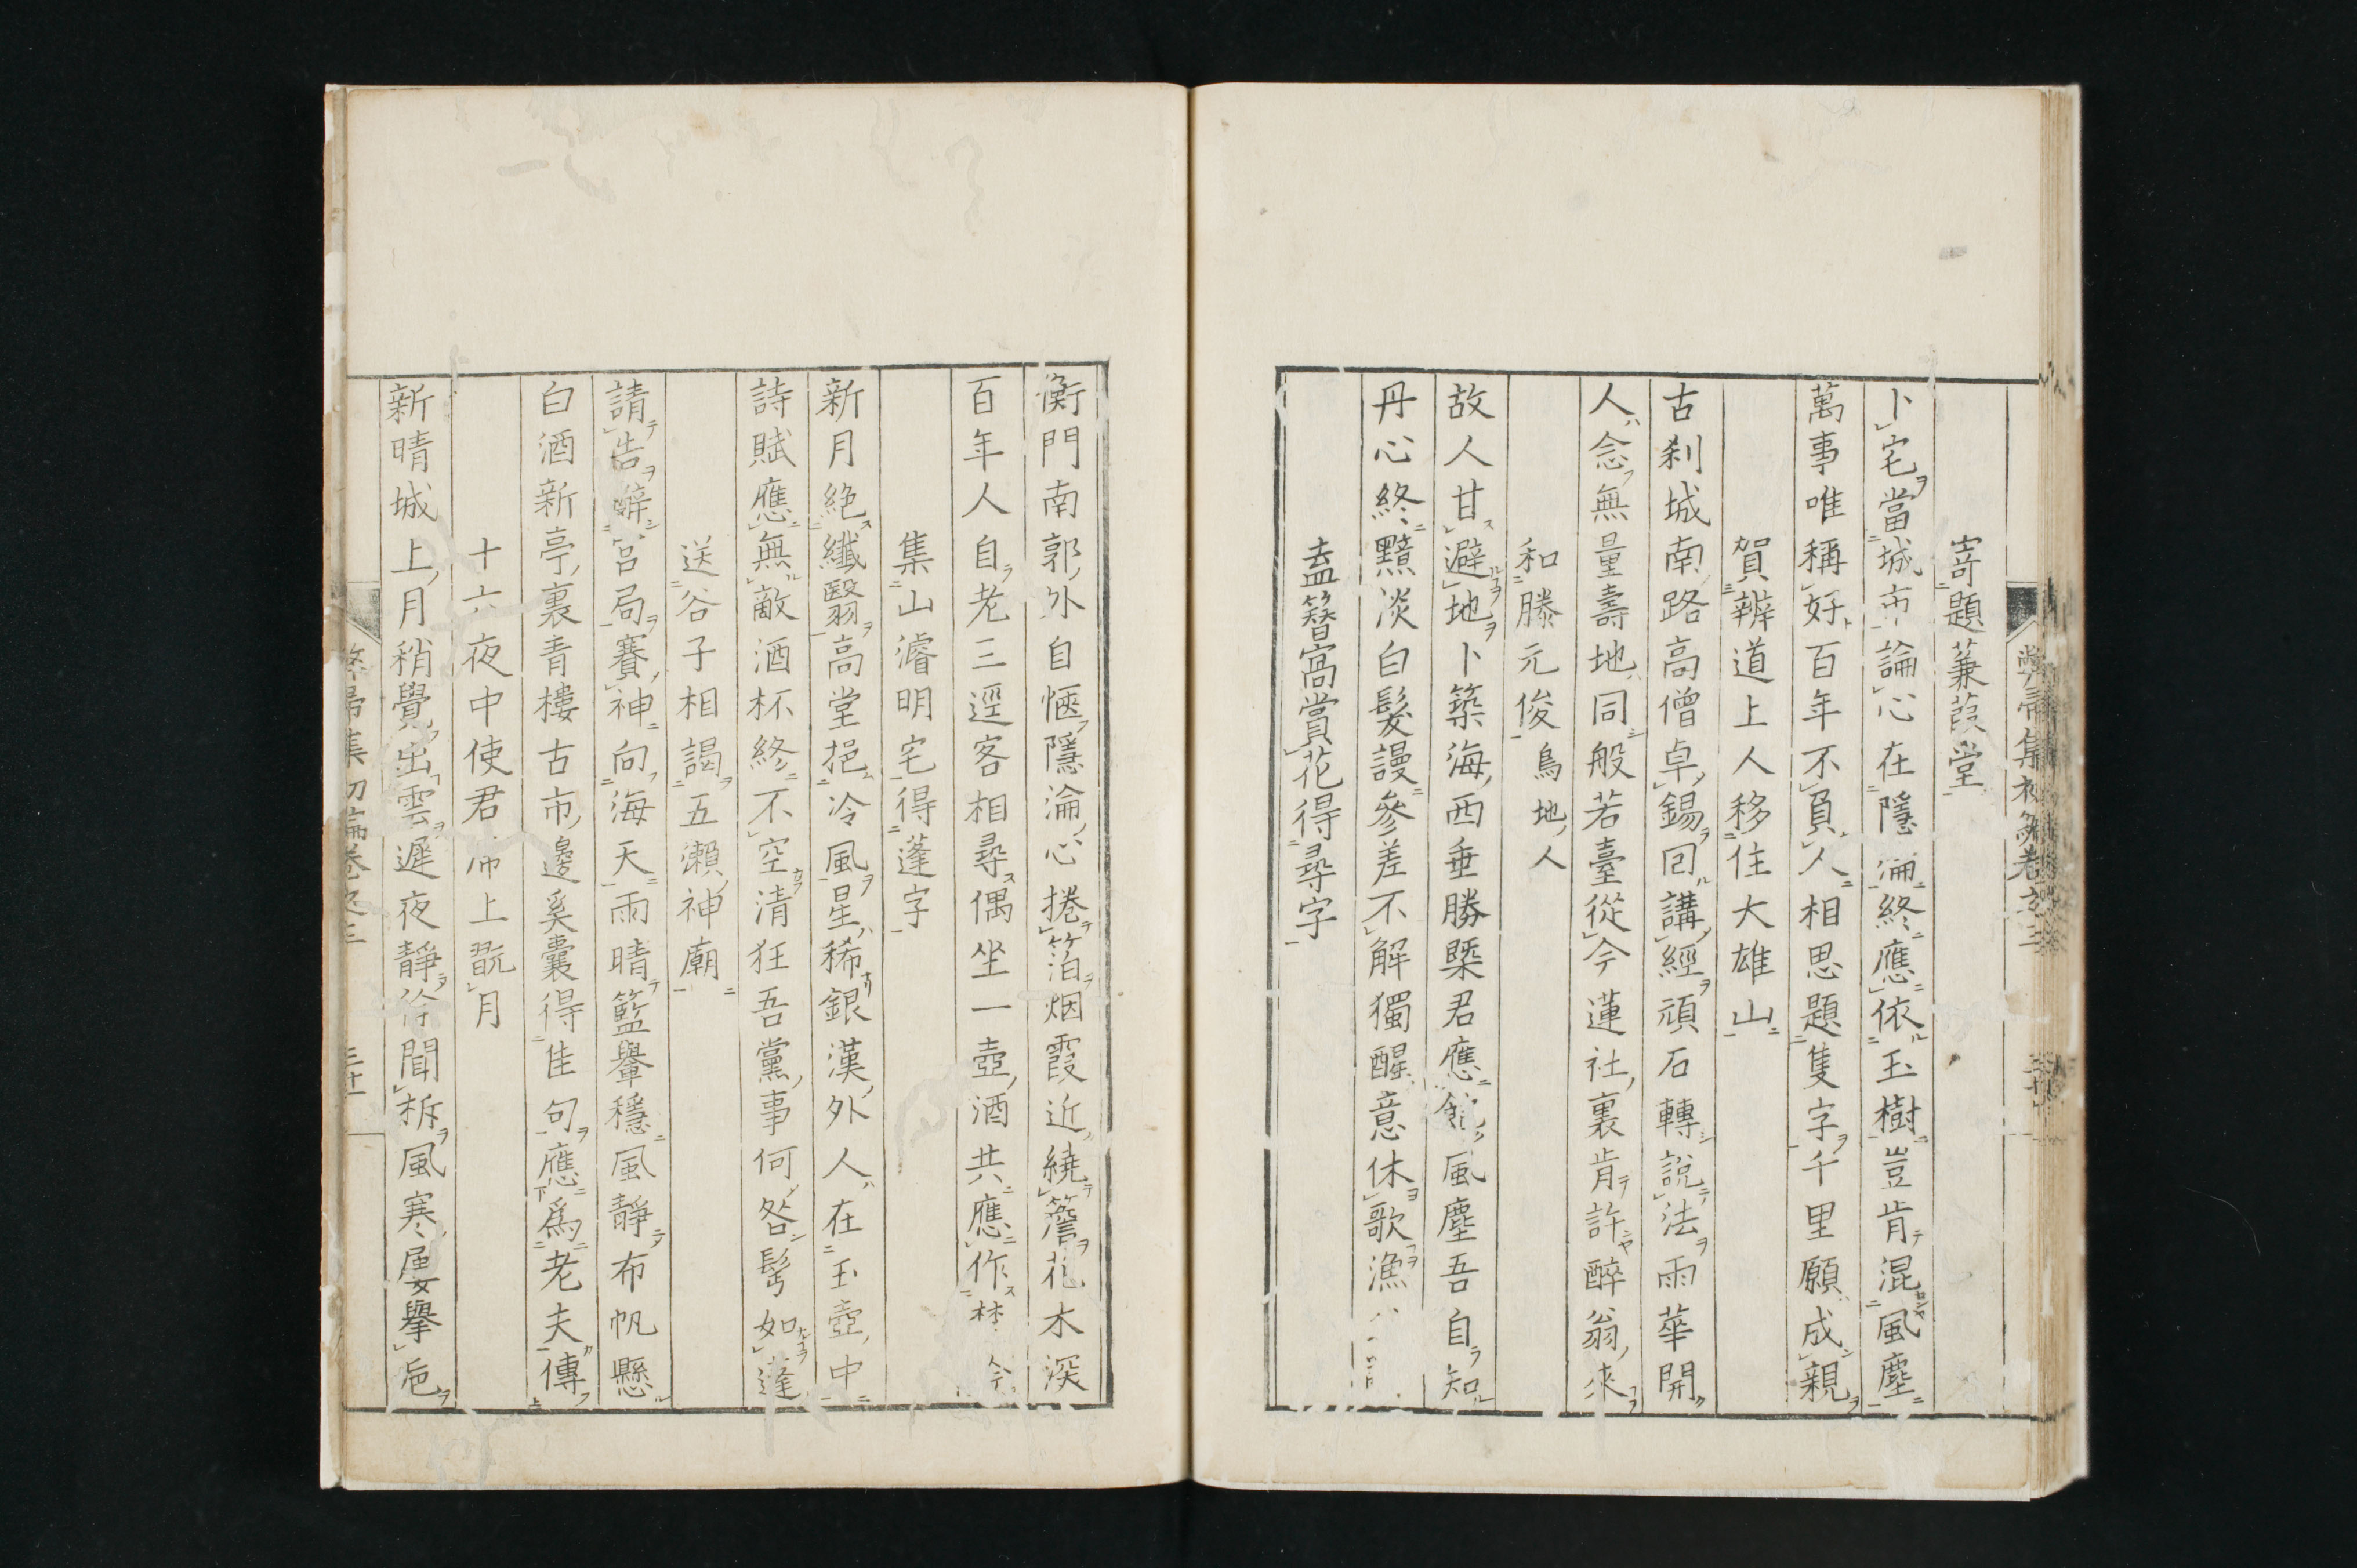 寄題蒹葭堂
卜宅當城市論心在隱淪終應依玉樹豈肯混風塵
萬事唯稱好百年不負人相思題隻字千里願成親
賀辨道上人移住大雄山
古刹城南路高僧卓錫回講經頑石轉說法雨華開
人念無量壽地同般若臺從今蓮社裏肯許醉翁來
和滕元俊 鳥地人
故人甘避地卜築海西垂勝槩君應飽風塵吾自知
丹心終黯淡白髮謾參差不解獨醒意休歌漁
盍簪窩賞花得尋字
衡門南郭外自愜隱淪心捲箔烟霞近繞簷花木深
百年人自老三逕客相尋偶坐一壺酒共應作
集山濬明宅得蓬字
新月絕纖翳高堂挹冷風星稀銀漢外人在玉壺中
詩賦應無敵酒杯終不空清狂吾黨事何咎髩如蓬
送谷子相謁五瀨神廟
請告辭官局賽神向海天雨晴籃轝穩風靜布帆懸
白酒新亭裏青樓古市邊奚囊得佳句應爲老夫傳
十六夜中使君席上翫月
新晴城上月稍覺出雲遲夜靜徐聞柝風寒屢擧巵